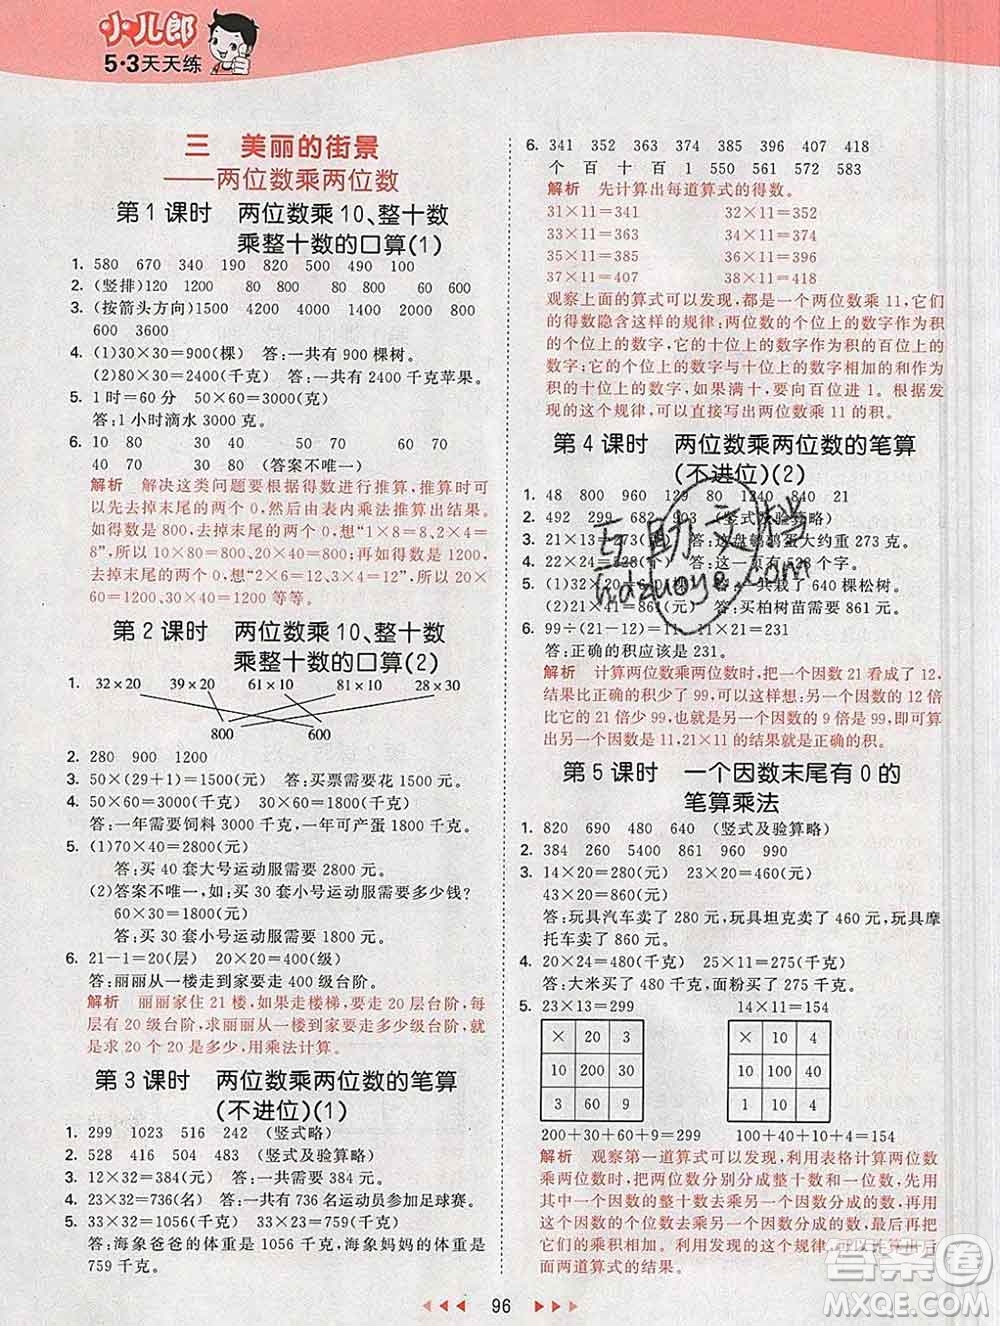 小儿郎
5·3天天练
三 美丽的街景
——两位数乘两位数
第1课时 两位数乘10、整十数
乘整十数的口算(1)
1. 580 670 340 190 820 510 490 100
2. (竖排)120 1200 80 800 80 800 60 600
3. (按箭头方向)1500 4200 2800 2400 800
600 3600
4. (1)30×30=900(棵) 答:一共有900棵树。
(2)80×30=2400(千克) 答:一共有2400千克苹果。
5. 1时=60分 50×60=3000(克)
答:1小时滴水3000克。
6. 10 80 30 40 50 60 70 60
40 70 30 80 (答案不唯一)
解析 解决这类问题要根据得数进行推算,推算时可
以先去掉末尾的两个0,然后由表内乘法推算出结果。
如得数是800,去掉末尾的两个0是8,想“1×8=8,2×4=
8”,所以10×80=800,20×40=800;得数是1200,
去掉末尾的两个0是12,想“2×6=12,3×4=12”,所
以20×60=1200,30×40=1200。
第2课时 两位数乘10、整十数
乘整十数的口算(2)
1. 32×20 39×20 61×10 81×10 28×30
800 600
2. 280 900 1200
3. 50×(29+1)=1500(元) 答:买票需要花1500元。
4. 50×60=3000(千克) 30×60=1800(千克)
答:一年需要饲料3000千克,一年可产蛋1800千克。
5. (1)70×40=2800(元)
答:买40套大号运动服需要2800元。
(2)答案不唯一,如买30套小号运动服需要多少钱?
60×30=1800(元)
答:买30套小号运动服需要1800元。
6. 21-1=20(层) 20×20=400(级)
答:丽丽从一楼走到家要走400级台阶。
解析 丽丽家住21楼,如果走楼梯,要走20层台阶,每
层有20级台阶,求丽丽从一楼走到家要走多少级台阶,就是
求20个20是多少,用乘法计算。
第3课时 两位数乘两位数的笔算
(不进位)(1)
1. 299 1023 516 242 (竖式略)
2. 528 416 504 483 (竖式及验算略)
3. 12×32=384(元) 答:一共需要384元。
4. 23×32=736(名) 答:一共有736名运动员参加足球赛。
5. 33×32=1056(千克) 33×23=759(千克)
答:海象爸爸的体重是1056千克,海象妈妈的体重是
759千克。
6. 341 352 363 374 385 396 407 418
个 百 十 百 1 550 561 572 583
解析 先计算出每道算式的得数。
31×11=341 32×11=352
33×11=363 34×11=374
35×11=385 36×11=396
37×11=407 38×11=418
观察上面的算式可以发现,都是一个两位数乘11,它们
的得数隐含这样的规律:两位数的个位上的数字作为积
的个位上的数字;它的十位上的数字作为积的百位上的
数字;它的个位上的数字与十位上的数字相加的和作为
积的十位上的数字,如果满十,要向百位进1。根据发
现的这个规律,可以直接写出两位数乘11的积。
第4课时 两位数乘两位数的笔算
(不进位)(2)
1. 48 800 960 129 80 1240 840 21
2. 492 299 682 903 (竖式及验算略)
3. 21×13=273(克) 答:这盘鹌鹑蛋大约重273克。
4. 22×24=528(个) 答:这一页有528个字。
5. (1)32×20=640(棵) 答:一共栽了640棵松树。
(2)21×41=861(元) 答:买柏树苗需要861元。
6. 99÷(21-12)=11 11×21=231
答:正确的积应该是231。
解析 计算两位数乘两位数时,把一个因数21看成了12,
结果比正确的积少了99,可以这样想:另一个因数的12倍
比它的21倍少99,也就是另一个因数的9倍是99,即可算
出另一个因数是11,21×11的结果就是正确的积。
第5课时 一个因数末尾有0的
笔算乘法
1. 820 690 480 640 (竖式及验算略)
2. 384 260 5400 860 960 990
3. 14×20=280(元) 23×20=460(元)
43×20=860(元)
答:玩具汽车卖了280元,玩具坦克卖了460元,玩具摩
托车卖了860元。
4. 20×24=480(千克) 25×11=275(千克)
答:大米买了480千克,面粉买了275千克。
5. 23×13=299 14×11=154
× 20 3 × 10 4
10 200 30 10 100 40
3 60 9 1 10 4
200+30+60+9=299 100+40+10+4=154
解析 观察第一道算式可以发现,利用表格计算两位数
乘两位数时,把两位数分别分成整十数和一位数,先用
其中一个因数的整十数去乘另一个因数分成的数,再用
这个因数的个位数去乘另一个因数分成的数,最后再把
它们的乘积相加。利用发现的这个规律,可以计算出后
面两道算式的结果。
互助文档
hdzuoye.com
答案圈
MXQE.COM
96